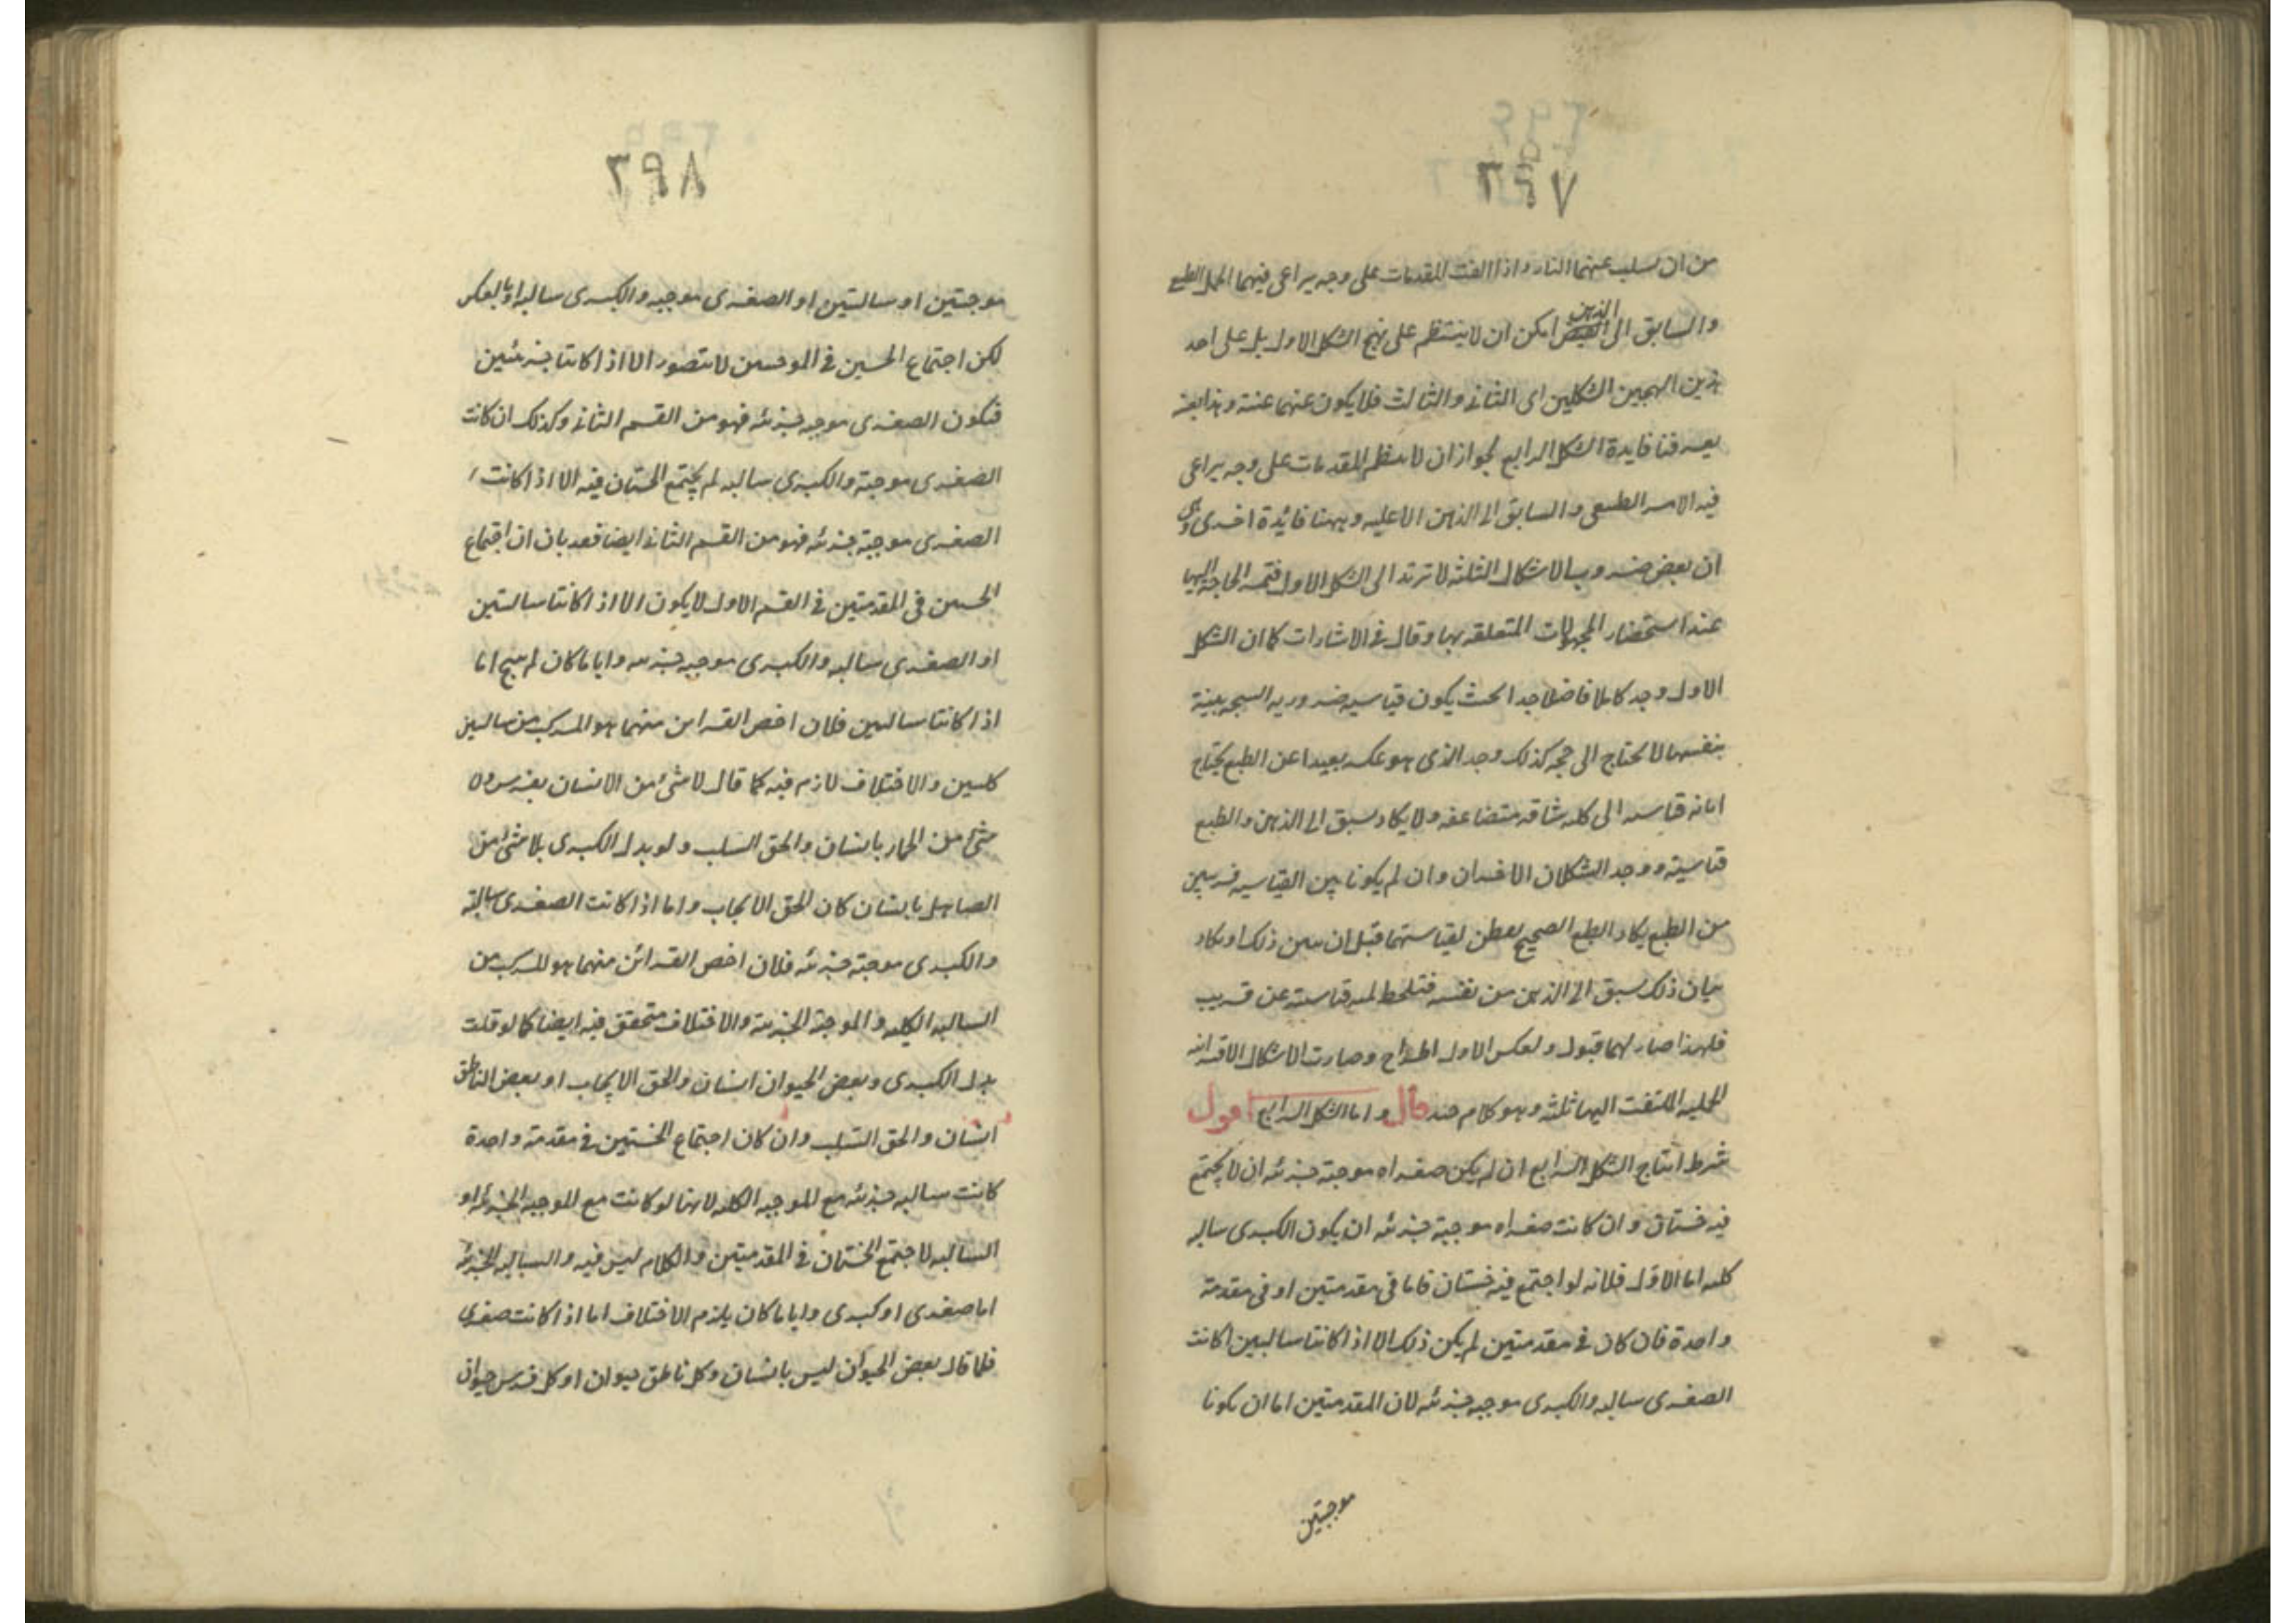 ٢٩٧
من ان يسلب عنهما النار واذا الفت المقدمات على وجه يراعى فيهما الحمل الطبع
والسابق الى الذهن امكن ان لا ينتظم على نهج الشكل الاول بل على احد
هذين الشكلين اى الثانى والثالث فلا يكون عنهما غنية وهذا بعينه
يعرفنا فايدة الشكل الرابع لجواز ان لا ينتظم المقدمات على وجه يراعى
فيه الامر الطبيعى والسابق الى الذهن الا عليه وههنا فائدة اخرى وهى
ان بعض ضروب الاشكال الثلثة لا ترتد الى الشكل الاول فتمس الحاجة اليها
عند استحضار المجهولات المتعلقة بها وقال فى الاشارات كما ان الشكل
الاول وجد كاملا فاضلا جدا بحيث يكون قياسيه ضروريه النتيجة بينة
بنفسها لا يحتاج الى حجة كذلك وجد الذى هو عكسه بعيدا عن الطبع يحتاج
ابانه قياسيه الى كلفه شاقه متضاعفه ولا يكاد يسبق الى الذهن والطبع
قياسيته ووجد الشكلان الاخران وان لم يكونا بين القياسيه قريبين
من الطبع يكاد الطبع الصحيح يفطن لقياسيتهما قبل ان يبين ذلك او يكاد
بيان ذلك يسبق الى الذهن من نفسه فتلحظ لميه قياسيته عن قريب
فلهذا صار لهما قبول ولعكس الاول اطراح وصارت الاشكال الاقترانيه
الحمليه الملتفت اليها ثلثه وهو كلام جيد قال واما الشكل الرابع اقول
شرط انتاج الشكل الرابع ان لم يكن صغراه موجبة جزئيه ان لا يجتمع
فيه خستان وان كانت صغراه موجبة جزئيه ان يكون الكبرى سالبه
كليه اما الاول فلانه لو اجتمع فيه خستان فاما فى مقدمتين او فى مقدمة
واحدة فان كان فى مقدمتين لم يكن ذلك الا اذا كانتا سالبتين او كانت
الصغرى سالبه والكبرى موجبه جزئيه لان المقدمتين اما ان يكونا
موجبتين
٢٩٨
موجبتين او سالبتين او الصغرى موجبه والكبرى سالبه او بالعكس
لكن اجتماع الخستين فى الموجبتين لا يتصور الا اذا كانتا جزئيتين
فيكون الصغرى موجبه جزئيه فهو من القسم الثانى وكذلك ان كانت
الصغرى موجبة والكبرى سالبه لم يجتمع الخستان فيه الا اذا كانت
الصغرى موجبة جزئيه فهو من القسم الثانى ايضا فقد بان ان اجتماع
الخستين فى المقدمتين فى القسم الاول لا يكون الا اذا كانتا سالبتين
او الصغرى سالبه والكبرى موجبه جزئيه وايا ما كان لم ينتج اما
اذا كانتا سالبتين فلان اخص القراين منهما هو المركب من سالبتين
كليتين والاختلاف لازم فيه كما قال لا شئ من الانسان بفرس ولا
شئ من الحمار بانسان والحق السلب ولو بدل الكبرى بلا شئ من
الصاهل بانسان كان الحق الايجاب واما اذا كانت الصغرى سالبة
والكبرى موجبة جزئيه فلان اخص القرائن منهما هو المركب من
السالبه الكليه والموجبة الجزئية والاختلاف متحقق فيه ايضا كما لو قلت
بدل الكبرى وبعض الحيوان انسان والحق الايجاب او بعض الناطق
انسان والحق السلب وان كان اجتماع الخستين فى مقدمة واحدة
كانت سالبه جزئيه مع الموجبه الكليه لانها لو كانت مع الموجبه الجزئيه او
السالبه لاجتمع الخستان فى المقدمتين والكلام ليس فيه والسالبه الجزئيه
اما صغرى او كبرى وايا ما كان يلزم الاختلاف اما اذا كانت صغرى
فلما قال بعض الحيوان ليس بانسان وكل ناطق حيوان او كل فرس حيوان